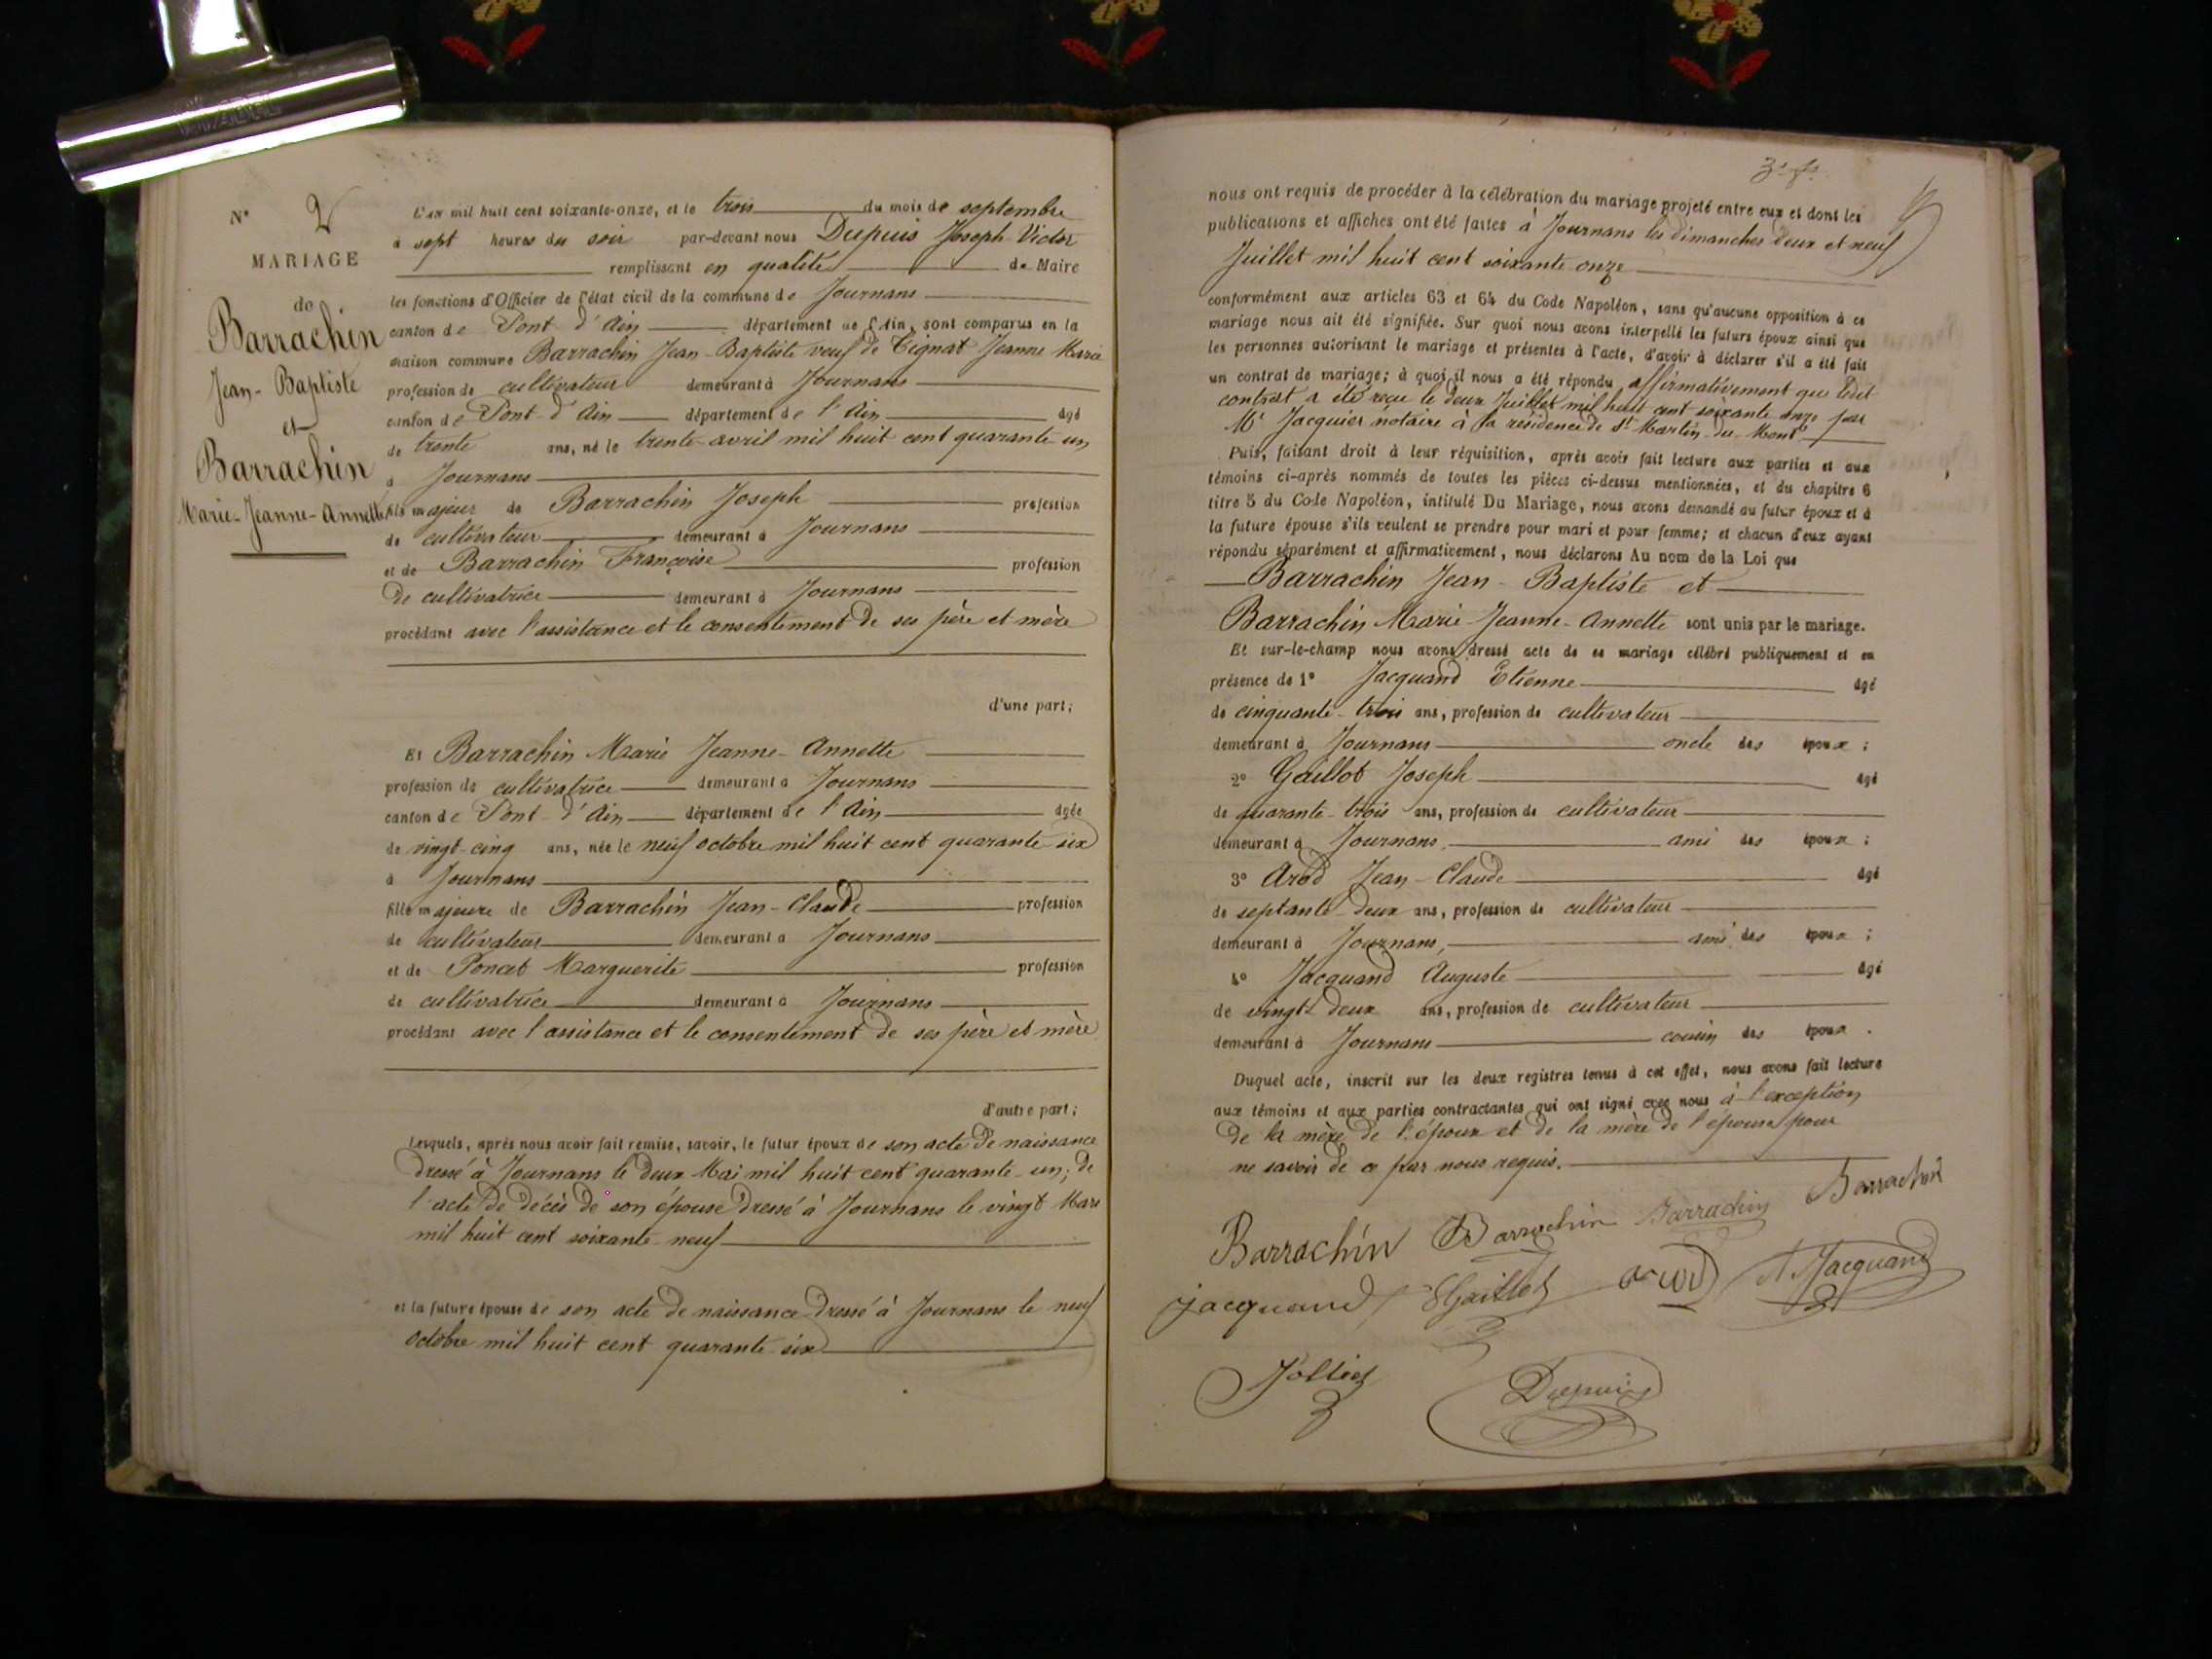 N° 2
MARIAGE
de
Barrachin
Jean-Baptiste
et
Barrachin
Marie-Jeanne-Annette
L'an mil huit cent soixante-onze, et le trois du mois de septembre
à sept heures du soir par-devant nous Dupuis Joseph Victor
remplissant en qualité de Maire
les fonctions d'Officier de l'état civil de la commune de Journans
canton de Pont-d'Ain département de l'Ain, sont comparus en la
maison commune Barrachin Jean-Baptiste veuf de Tignat Jeanne Marie
profession de cultivateur demeurant à Journans
canton de Pont-d'Ain département de l'Ain âgé
de trente ans, né le trente avril mil huit cent quarante un
à Journans
fils majeur de Barrachin Joseph profession
de cultivateur demeurant à Journans
et de Barrachin Françoise profession
de cultivatrice demeurant à Journans
procédant avec l'assistance et le consentement de ses père et mère
d'une part;
Et Barrachin Marie Jeanne-Annette
profession de cultivatrice demeurant à Journans
canton de Pont-d'Ain département de l'Ain âgée
de vingt-cinq ans, née le neuf octobre mil huit cent quarante-six
à Journans
fille majeure de Barrachin Jean-Claude profession
de cultivateur demeurant à Journans
et de Poncet Marguerite profession
de cultivatrice demeurant à Journans
procédant avec l'assistance et le consentement de ses père et mère
d'autre part;
Lesquels, après nous avoir fait remise, savoir, le futur époux de son acte de naissance
dressé à Journans le deux Mai mil huit cent quarante-un; de
l'acte de décès de son épouse dressé à Journans le vingt Mars
mil huit cent soixante-neuf
et la future épouse de son acte de naissance dressé à Journans le neuf
octobre mil huit cent quarante six
nous ont requis de procéder à la célébration du mariage projeté entre eux et dont les
publications et affiches ont été faites à Journans les dimanches deux et neuf
Juillet mil huit cent soixante onze
conformément aux articles 63 et 64 du Code Napoléon, sans qu'aucune opposition à ce
mariage nous ait été signifiée. Sur quoi nous avons interpellé les futurs époux ainsi que
les personnes autorisant le mariage et présentes à l'acte, d'avoir à déclarer s'il a été fait
un contrat de mariage; à quoi il nous a été répondu affirmativement que ledit
contrat a été reçu le deux Juillet mil huit cent soixante onze par
Me Jacquier notaire à la résidence de St Martin-du-Mont
Puis, faisant droit à leur réquisition, après avoir fait lecture aux parties et aux
témoins ci-après nommés de toutes les pièces ci-dessus mentionnées, et du chapitre 6
titre 5 du Code Napoléon, intitulé Du Mariage, nous avons demandé au futur époux et à
la future épouse s'ils veulent se prendre pour mari et pour femme; et chacun d'eux ayant
répondu séparément et affirmativement, nous déclarons Au nom de la Loi que
Barrachin Jean-Baptiste et
Barrachin Marie-Jeanne-Annette sont unis par le mariage.
Et sur-le-champ nous avons dressé acte de ce mariage célébré publiquement et en
présence de 1° Jacquand Etienne âgé
de cinquante-trois ans, profession de cultivateur
demeurant à Journans oncle des époux;
2° Gaillot Joseph âgé
de quarante-trois ans, profession de cultivateur
demeurant à Journans ami des époux;
3° Arod Jean-Claude âgé
de septante-deux ans, profession de cultivateur
demeurant à Journans, ami des époux;
4° Jacquand Auguste âgé
de vingt deux ans, profession de cultivateur
demeurant à Journans cousin des époux.
Duquel acte, inscrit sur les deux registres tenus à cet effet, nous avons fait lecture
aux témoins et aux parties contractantes qui ont signé avec nous à l'exception
de la mère de l'époux et de la mère de l'épouse pour
ne savoir de ce par nous requis.
Barrachin Barrachin Barrachin Barrachin
jacquand Gaillot arod A Jacquand
Dupuis